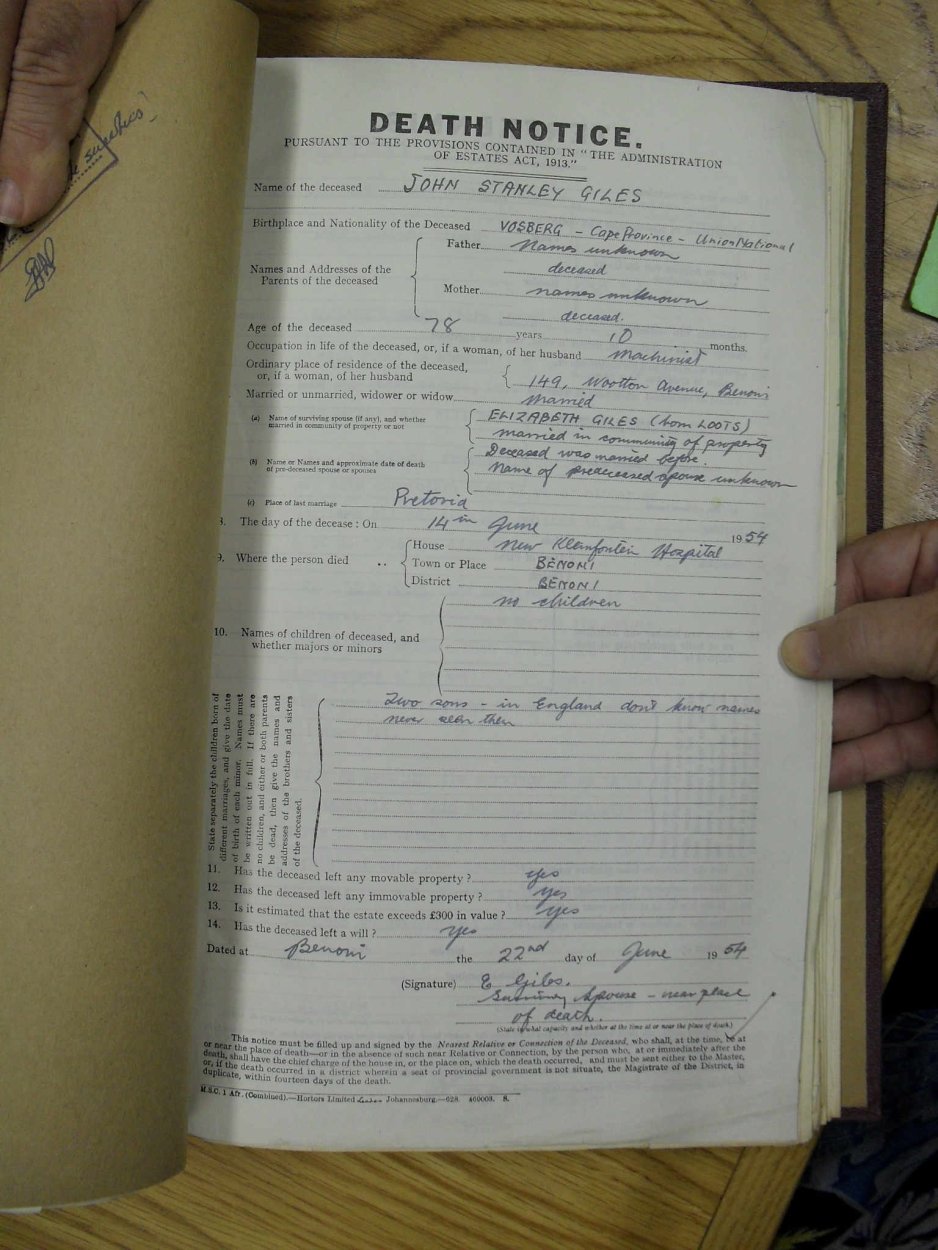 suretics!
DEATH NOTICE.
PURSUANT TO THE PROVISIONS CONTAINED IN "THE ADMINISTRATION
OF ESTATES ACT, 1913."
Name of the deceased JOHN STANLEY GILES
Birthplace and Nationality of the Deceased VOSBERG - Cape Province - Union National
Names and Addresses of the Parents of the deceased
Father names unknown
deceased
Mother names unknown
deceased.
Age of the deceased 78 years 10 months.
Occupation in life of the deceased, or, if a woman, of her husband Machinist
Ordinary place of residence of the deceased,
or, if a woman, of her husband 149, Wootton Avenue, Benoni
Married or unmarried, widower or widow married
(a) Name of surviving spouse (if any), and whether
married in community of property or not
ELIZABETH GILES (born LOOTS)
married in community of property
(b) Name or Names and approximate date of death
of pre-deceased spouse or spouses
Deceased was married before.
Name of predeceased spouse unknown
(c) Place of last marriage Pretoria
8. The day of the decease : On 14th June 1954
9. Where the person died ..
House New Kleinfontein Hospital
Town or Place BENONI
District BENONI
10. Names of children of deceased, and
whether majors or minors
no children
State separately the children born of
different marriages, and give the date
of birth of each minor. Names must
be written out in full. If there are
no children, and either or both parents
be dead, then give the names and
addresses of the brothers and sisters
of the deceased.
Two sons - in England don't know names
never seen them
11. Has the deceased left any movable property ? yes
12. Has the deceased left any immovable property ? yes
13. Is it estimated that the estate exceeds £300 in value ? yes
14. Has the deceased left a will ? yes
Dated at Benoni the 22nd day of June 1954
(Signature) E Giles.
Surviving Spouse - near place
of death.
(State in what capacity and whether at the time at or near the place of death)
This notice must be filled up and signed by the Nearest Relative or Connection of the Deceased, who shall, at the time, be at
or near the place of death—or in the absence of such near Relative or Connection, by the person who, at or immediately after the
death, shall have the chief charge of the house in, or the place on, which the death occurred, and must be sent either to the Master,
or, if the death occurred in a district wherein a seat of provincial government is not situate, the Magistrate of the District, in
duplicate, within fourteen days of the death.
M.S.C. 1 Aft. (Combined).—Hortors Limited Johannesburg.—628. S.